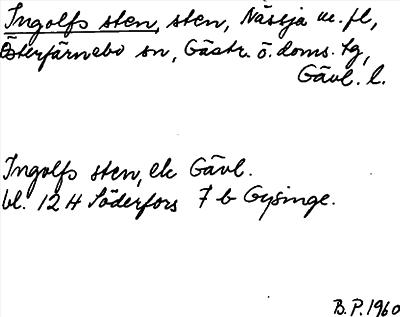 Ingolfs sten, sten, Nässja m.fl,
Österfärnebo sn, Gästr. ö. doms. tg,
Gävl. l.
Ingolfs sten, ek Gävl.
bl. 12 H Söderfors 7 b Gysinge.
B.P. 1960